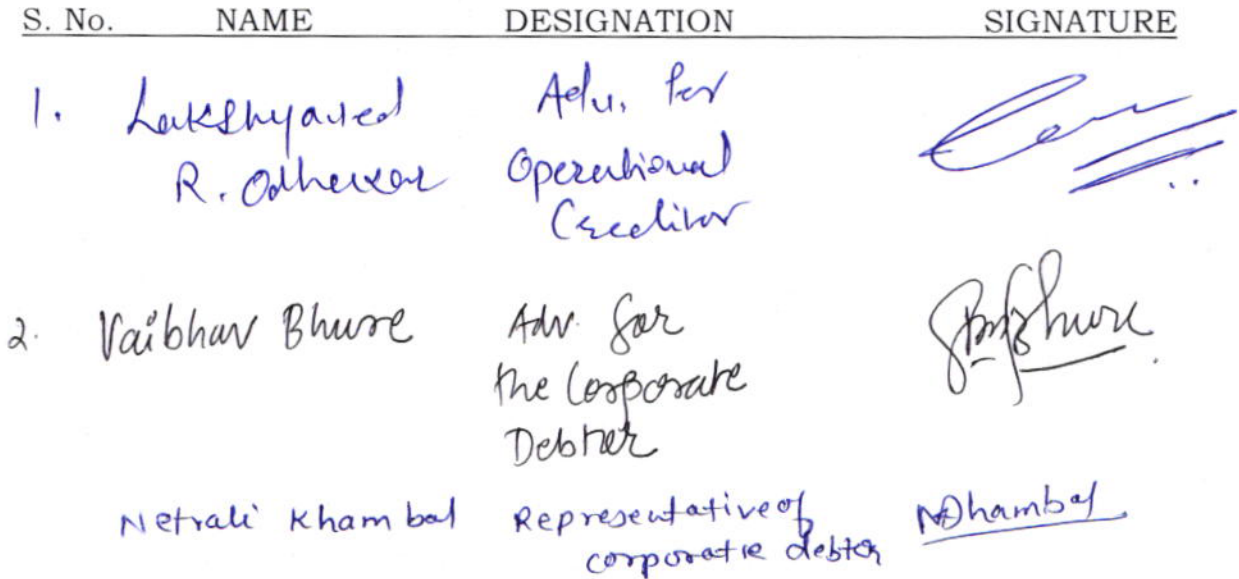 S. No. NAME DESIGNATION SIGNATURE
1. Lakshyaved Adv. for
R. Odhekar Operational
Creditor
2. Vaibhav Bhure Adv. for
the Corporate
Debtor
Netrali Khambal Representative of
corporate debtor